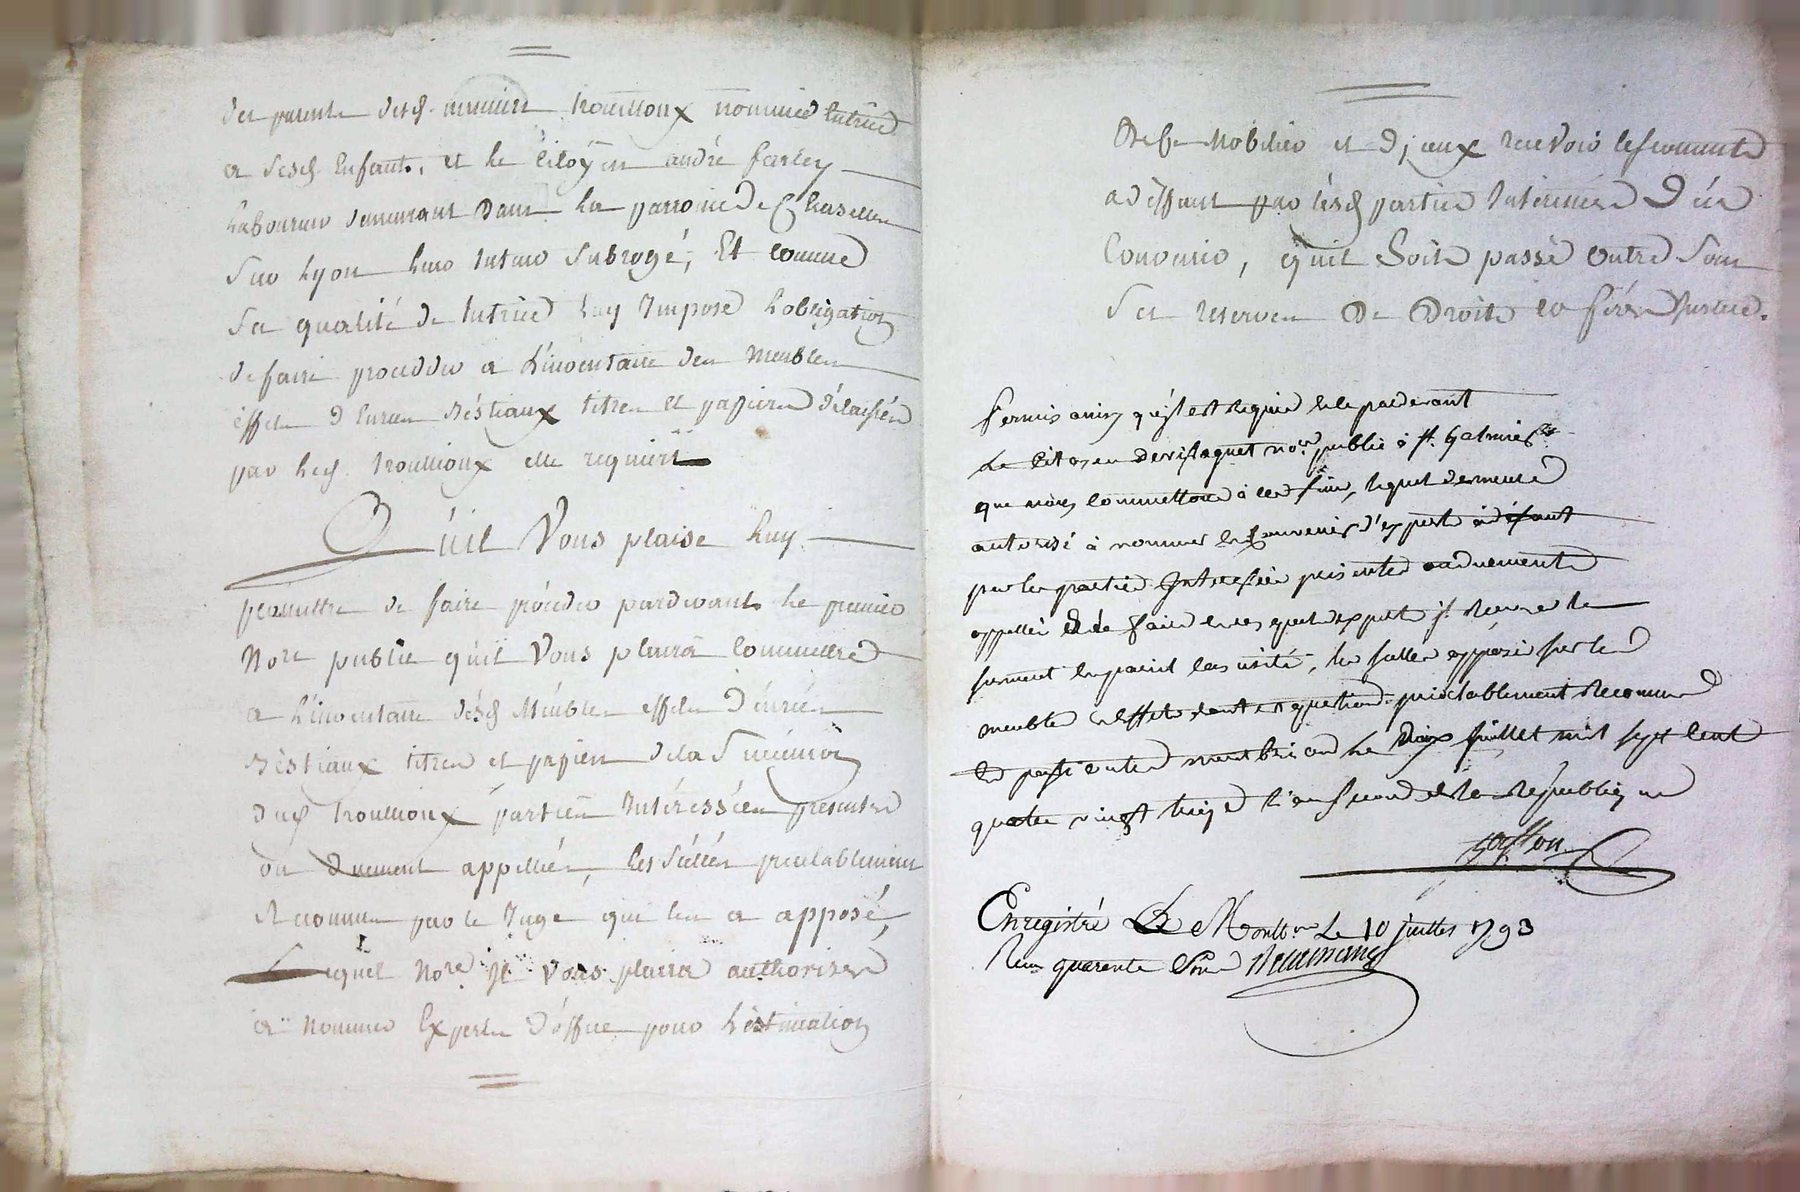 des parents desd. mineurs trouilloux nommée tutrice
a sesd. Enfants, et le Citoÿen andré farley
Laboureur demeurant Dans La parroisse de Chaselles
sur Lyon Leur tuteur Subrogé, Et comme
Sa qualité de tutrice Luy Impose Lobligation
de faire procedder a Linventaire des Meubles
effets Denrées Béstiaux titres et papiers délaissés
par Led. trouilloux elle requiert
Quil Vous plaise Luy
permettre de faire procéder pardevant Le premier
Nore public quil Vous plaira Commettre
a Linventaire desd. Meubles effets Denrées
Béstiaux titres et papiers dela Succession
dud. trouilloux parties Intéressées présentes
ou duement appellées, Les Scéllés préalablement
Reconnus par le Juge qui les a apposé,
Lequel Nore Jl Vous plaira authoriser
a Nommer Experts d'office pour Lestimation
Dece Mobilier et d'jceux recevoir le serment
adéffaut par lesd. parties Intéressées d'en
Convenir, quil Soit passé outre Sans
Ses reserves De Droits Justice.
Permis ainsy qu'jl est requis
Le Citoyen nore public à st. Galmier
que nous Commettons à ces fins, lequel demeure
autorisé à nommer d'experts à défaut
par les parties Intéressées présentes ou duement
appellées de faire desquels experts jl Recevra le
serment en pareil cas usité, les scellés apposés sur les
meubles et effets dont est question préalablement Reconnus
en présentes montbrison Le dix juillet mil sept Cent
quatre vingt treize l'an second de la République
Enregistré A Montb.on Le 10 juillet 1793
Reçu quarante Sous